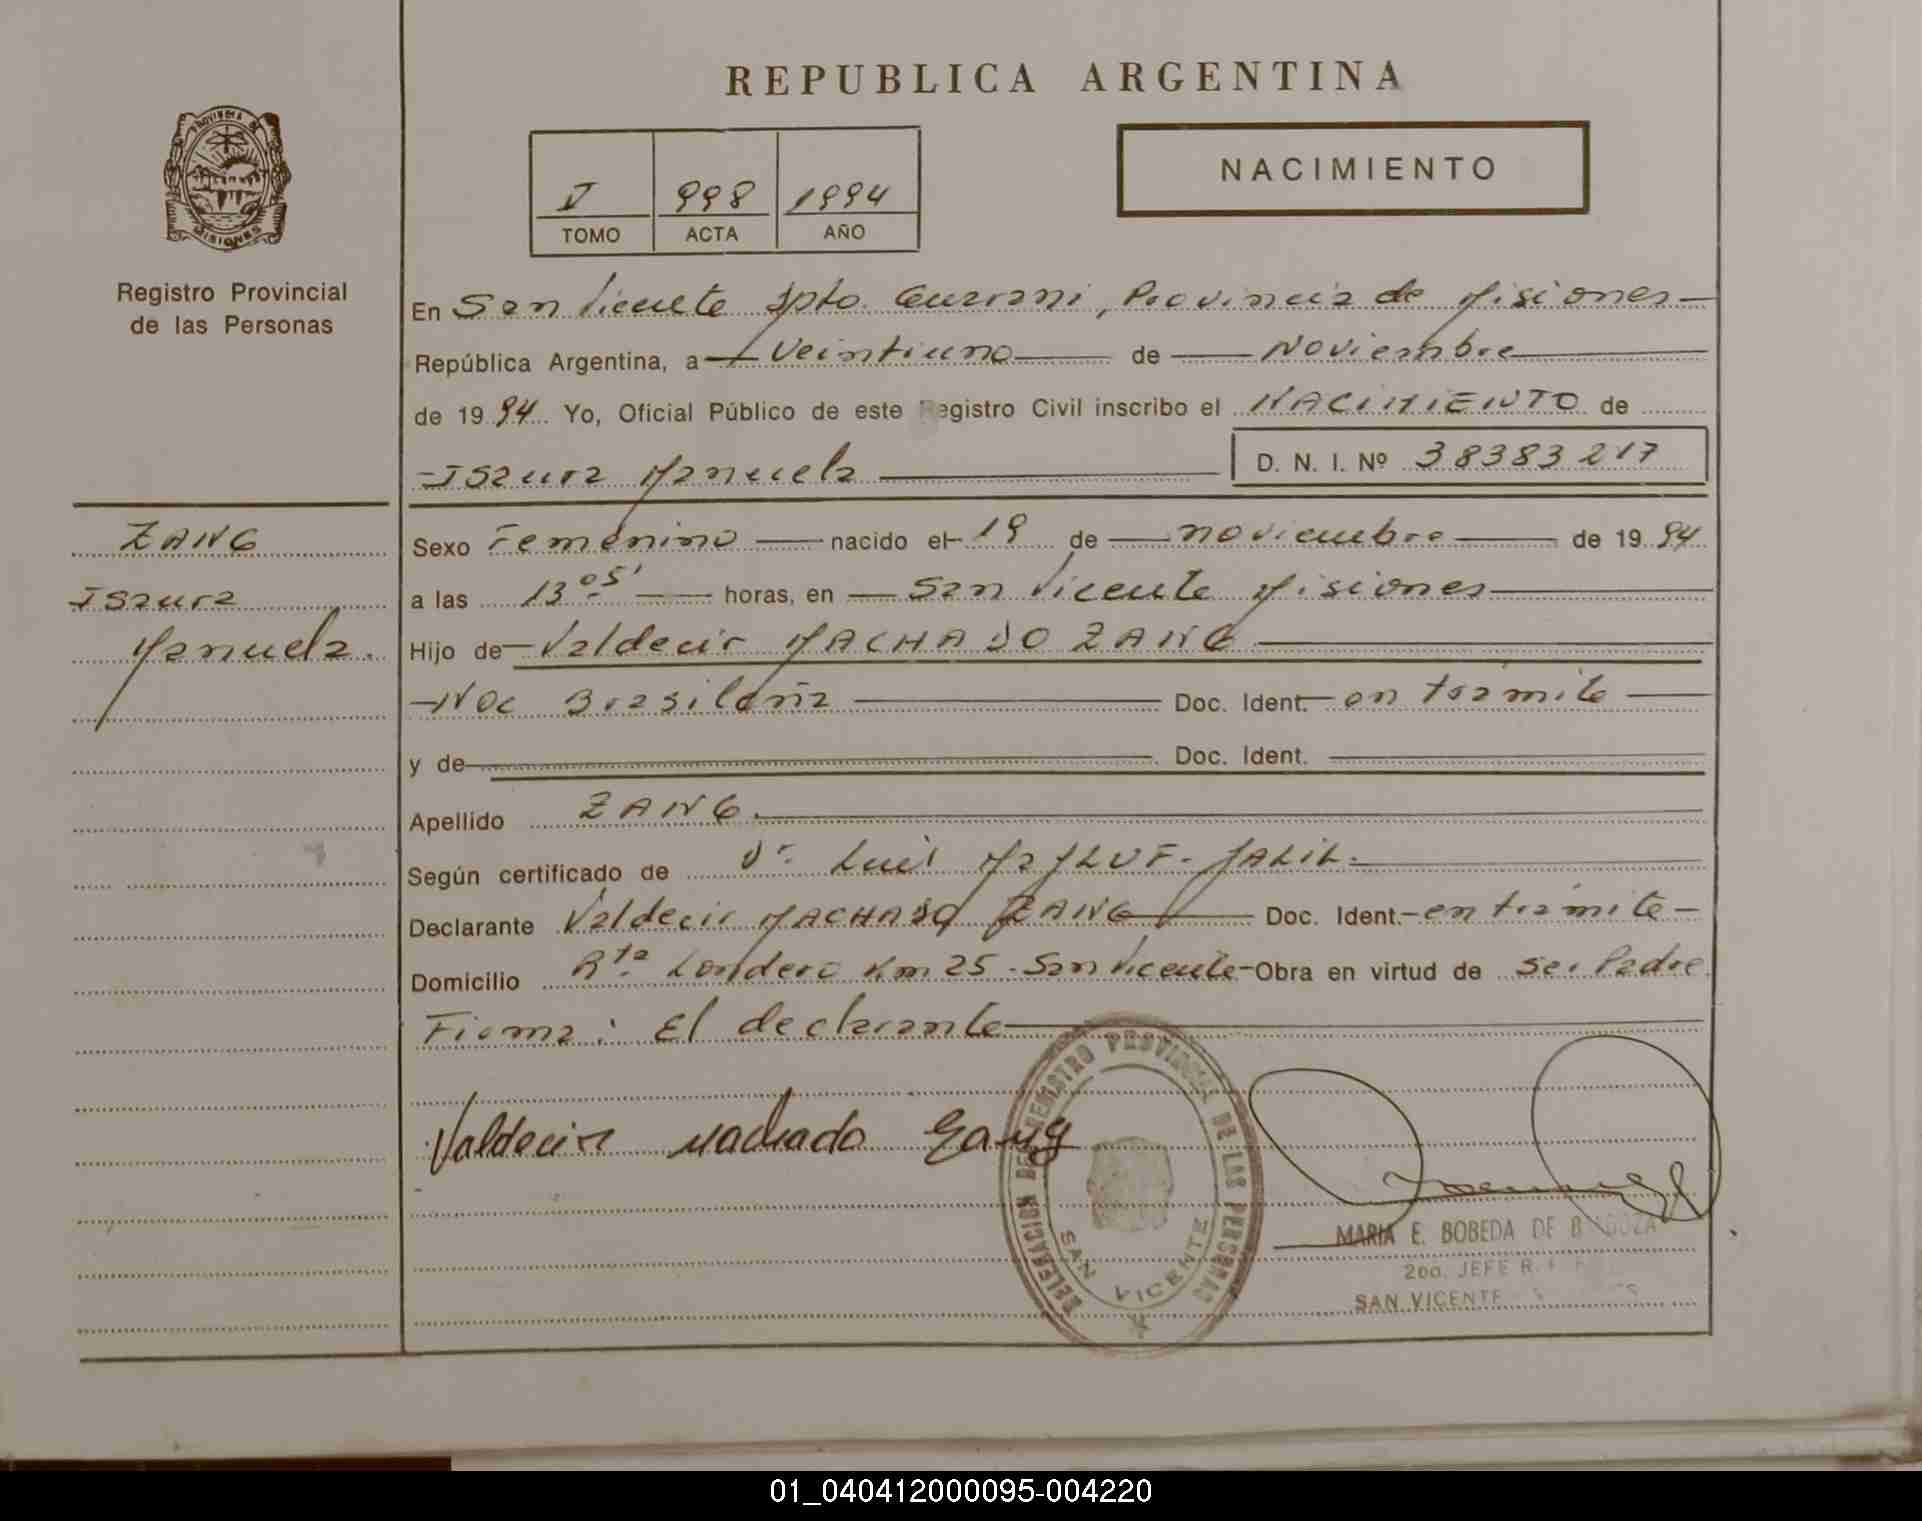 REPUBLICA ARGENTINA
PROVINCIA DE
MISIONES
Registro Provincial
de las Personas
NACIMIENTO
V 998 1994
TOMO ACTA AÑO
En San Vicente Dpto. Guarani, Provincia de Misiones
República Argentina, a Veintiuno de Noviembre
de 19 94 Yo, Oficial Público de este Registro Civil inscribo el NACIMIENTO de
Isaura Manuela D. N. I. Nº 38383217
ZANG
Isaura
Manuela.
Sexo Femenino nacido el 19 de noviembre de 19 94
a las 13 05' horas, en San Vicente Misiones
Hijo de Valdecir MACHADO ZANG
Nac Brasileña Doc. Ident. en trámite
y de Doc. Ident.
Apellido ZANG.
Según certificado de Dr. Luis JALIL.
Declarante Valdecir MACHADO ZANG Doc. Ident. en trámite
Domicilio Rta. Londero Km 25 - San Vicente - Obra en virtud de ser Padre
Firma: El declarante
Valdecir Machado Zang
DELEGACION DEL REGISTRO PROVINCIAL DE LAS PERSONAS
SAN VICENTE
MARIA E. BOBEDA DE
2do. JEFE R.
SAN VICENTE
01_040412000095-004220